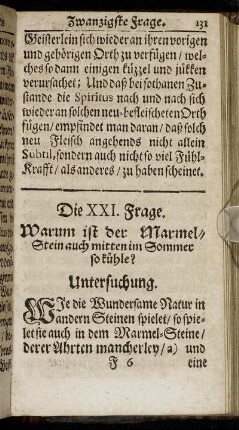 Zwanzigste Frage. 131
Geisterlein sich wieder an ihren vorigen
und gehörigen Orth zu verfügen / wel-
ches so dann einigen küzzel und jükken
verursachet; Und daß bei sothanen Zu-
stande die Spiritus nach und nach sich
wieder an solchen neu-befleischeten Orth
fügen / empfindet man daran / daß solch
neu Fleisch angehends nicht allein
Subtil, sondern auch nicht so viel Fühl-
Krafft / als anderes / zu haben scheinet.
Die XXI. Frage.
Warum ist der Marmel-
Stein auch mitten im Sommer
so kühle?
Untersuchung.
WIe die Wundersame Natur in
andern Steinen spielet / so spie-
let sie auch in dem Marmel-Steine /
derer Ahrten mancherley / a) und
F 6 eine